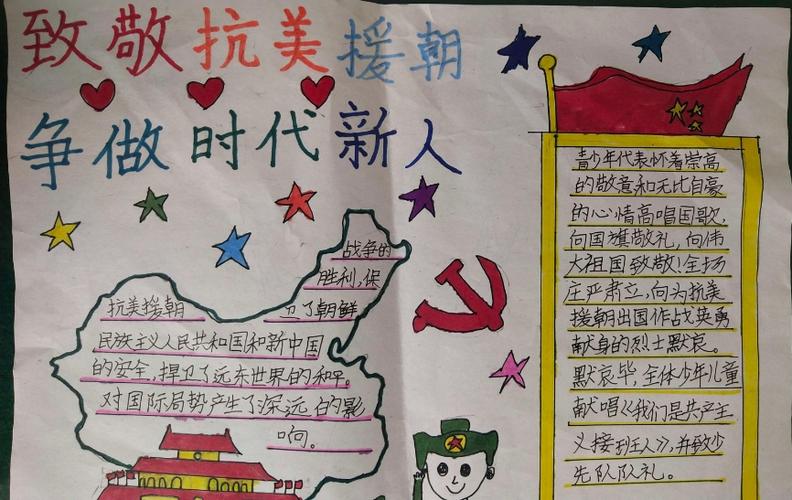 致敬抗美援朝
争做时代新人
战争的
胜利,保
抗美援朝 卫了朝鲜
民族主义人民共和国和新中国
的安全,捍卫了远东世界的和平。
对国际局势产生了深远的影
响。
青少年代表怀着崇高
的敬意和无比自豪
的心情高唱国歌,
向国旗敬礼,向伟
大祖国致敬!全场
庄严肃立,向为抗美
援朝出国作战英勇
献身的烈士默哀。
默哀毕,全体少年儿童
献唱《我们是共产主
义接班人》,并致少
先队队礼。